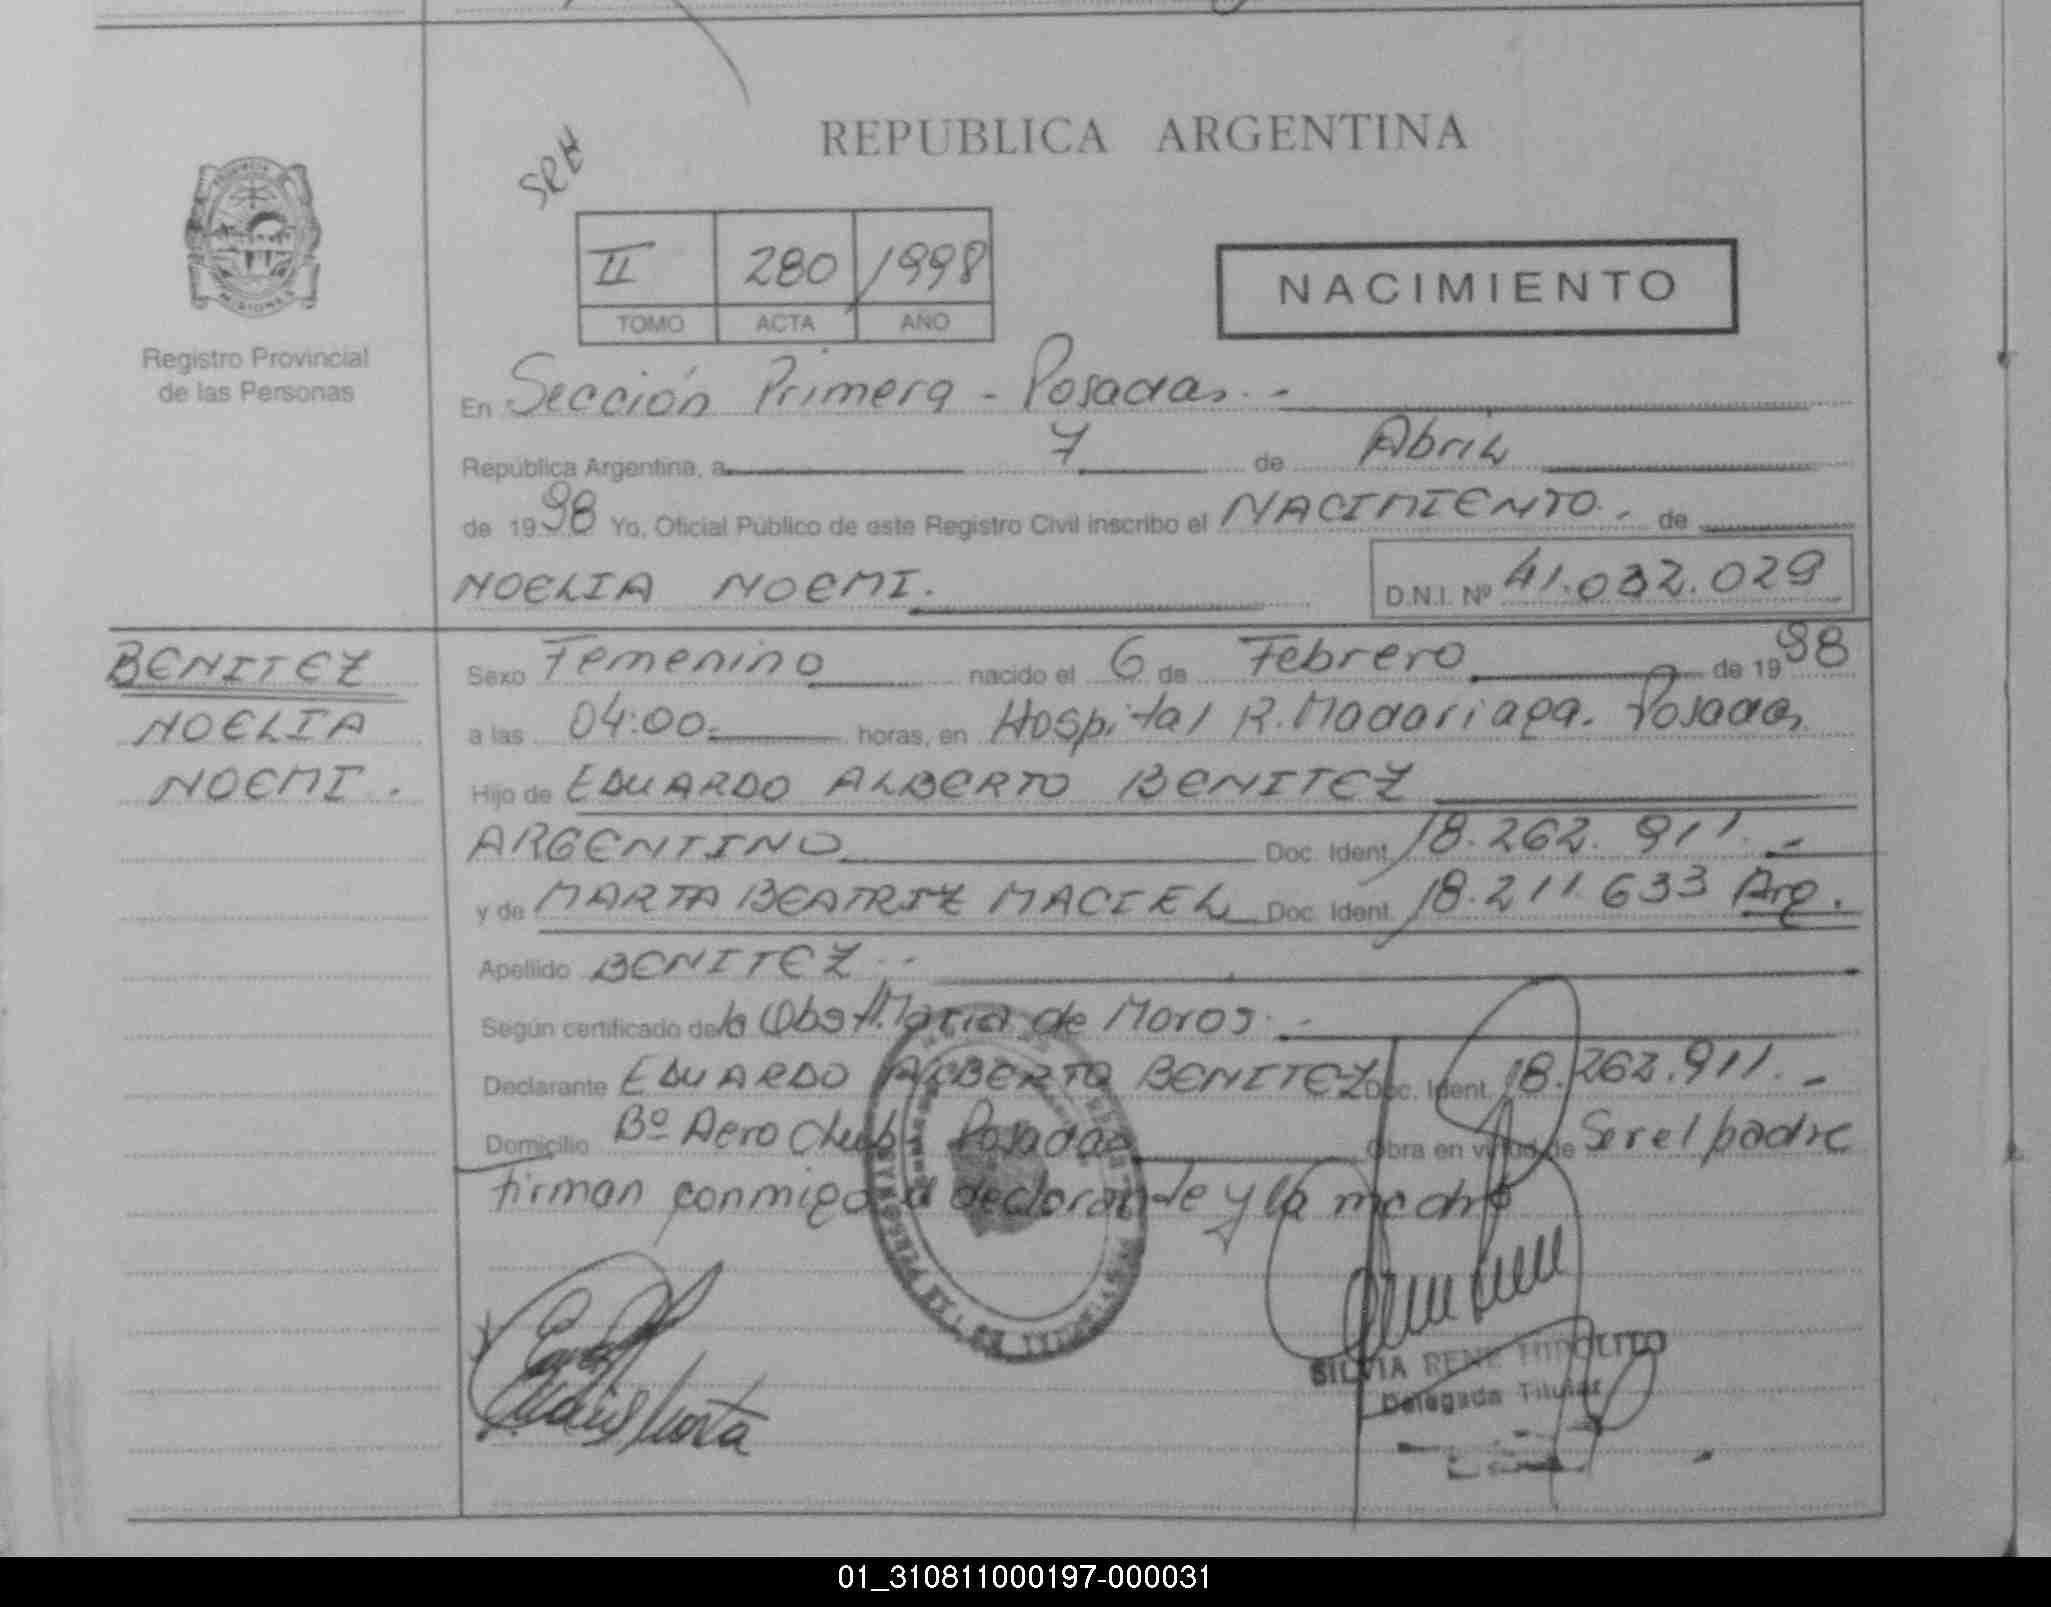 REPUBLICA ARGENTINA
SRH
II 280 1998
TOMO ACTA AÑO
NACIMIENTO
MISIONES
Registro Provincial
de las Personas
En Sección Primera - Posadas. -
República Argentina, a 7 de Abril
de 1998 Yo, Oficial Público de este Registro Civil inscribo el NACIMIENTO. de
NOELIA NOEMI. D.N.I. Nº 41.032.029
BENITEZ
NOELIA
NOEMI.
Sexo Femenino nacido el 6 de Febrero de 1998
a las 04:00. horas, en Hospital R. Madariaga. Posadas
Hijo de EDUARDO ALBERTO BENITEZ
ARGENTINO Doc. Ident. 18.262.911. -
y de MARTA BEATRIZ MACIEL Doc. Ident. 18.211.633 Arg.
Apellido BENITEZ
Según certificado de la Obst. Maria de Moros. -
Declarante EDUARDO ALBERTO BENITEZ Doc. Ident. 18.262.911. -
Domicilio Bº Aero Club - Posadas Obra en virtud de Ser el padre
firman conmigo el declarante y la madre
SILVIA RENE HIPOLITO
Delegada Titular
01_310811000197-000031